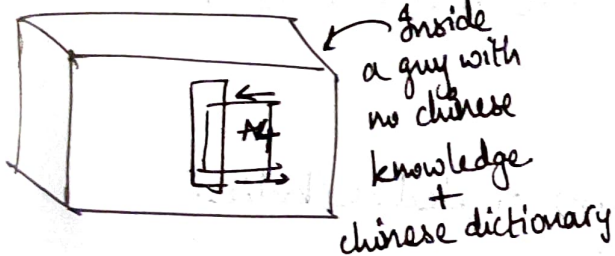 Inside
a guy with
no chinese
A4
knowledge
+
chinese dictionary